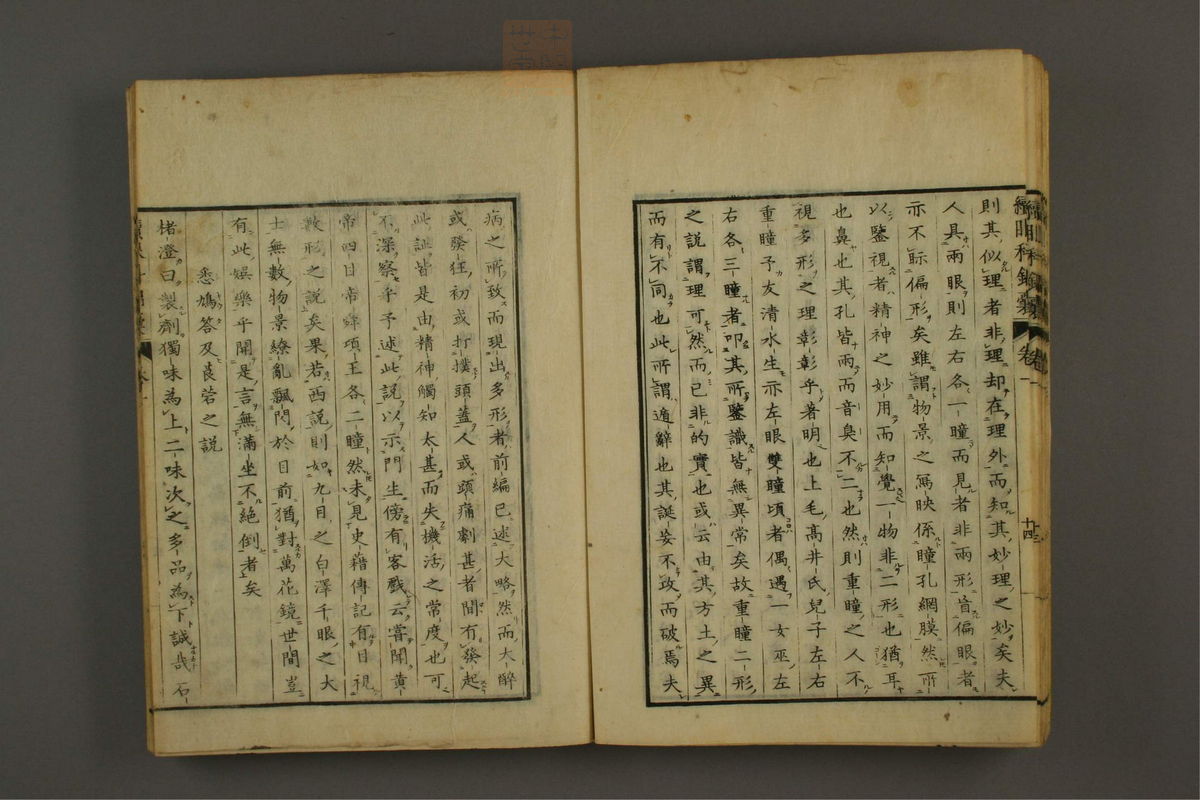 則其似理者非理却在理外而知其妙理之妙矣夫
人具兩眼則左右各一瞳而見者非兩形皆偏眼者
亦不眎偏形矣雖謂物景之寫映係瞳孔網膜然所
以鑒視者精神之妙用而知覺一物非二形也猶耳
也鼻也其孔皆兩而音臭不二也然則重瞳之人不
視多形之理彰彰乎著明也上毛高井氏兒子左右
重瞳予友清水生亦左眼雙瞳頃者偶遇一女巫左
右各三瞳者叩其所鑒識皆無異常矣故重瞳二形
之説謂理可然而已非的實也或云由其方土之異
而有不同也此所謂遁辭也其誕妄不攻而破焉夫
病之所致而現出多形者前編已述大略然而大醉
或發狂初或打撲頭蓋人或頭痛劇甚者間有發起
此証皆是由精神觸知太甚而失機活之常度也可
不深察乎予述此説以示門生傍有客戲云嘗聞黄
帝四目帝舜項王各二瞳然未見史藉傳記有目視
數形之説矣果若西説則如九目之白澤千眼之大
士無數物景繚亂飄閃於目前猶對萬花鏡世間豈
有此娯樂乎聞是言無滿坐不絶倒者矣
悉鳩答及莨菪之説
楮澄曰製劑獨味為上二味次之多品為下誠哉石